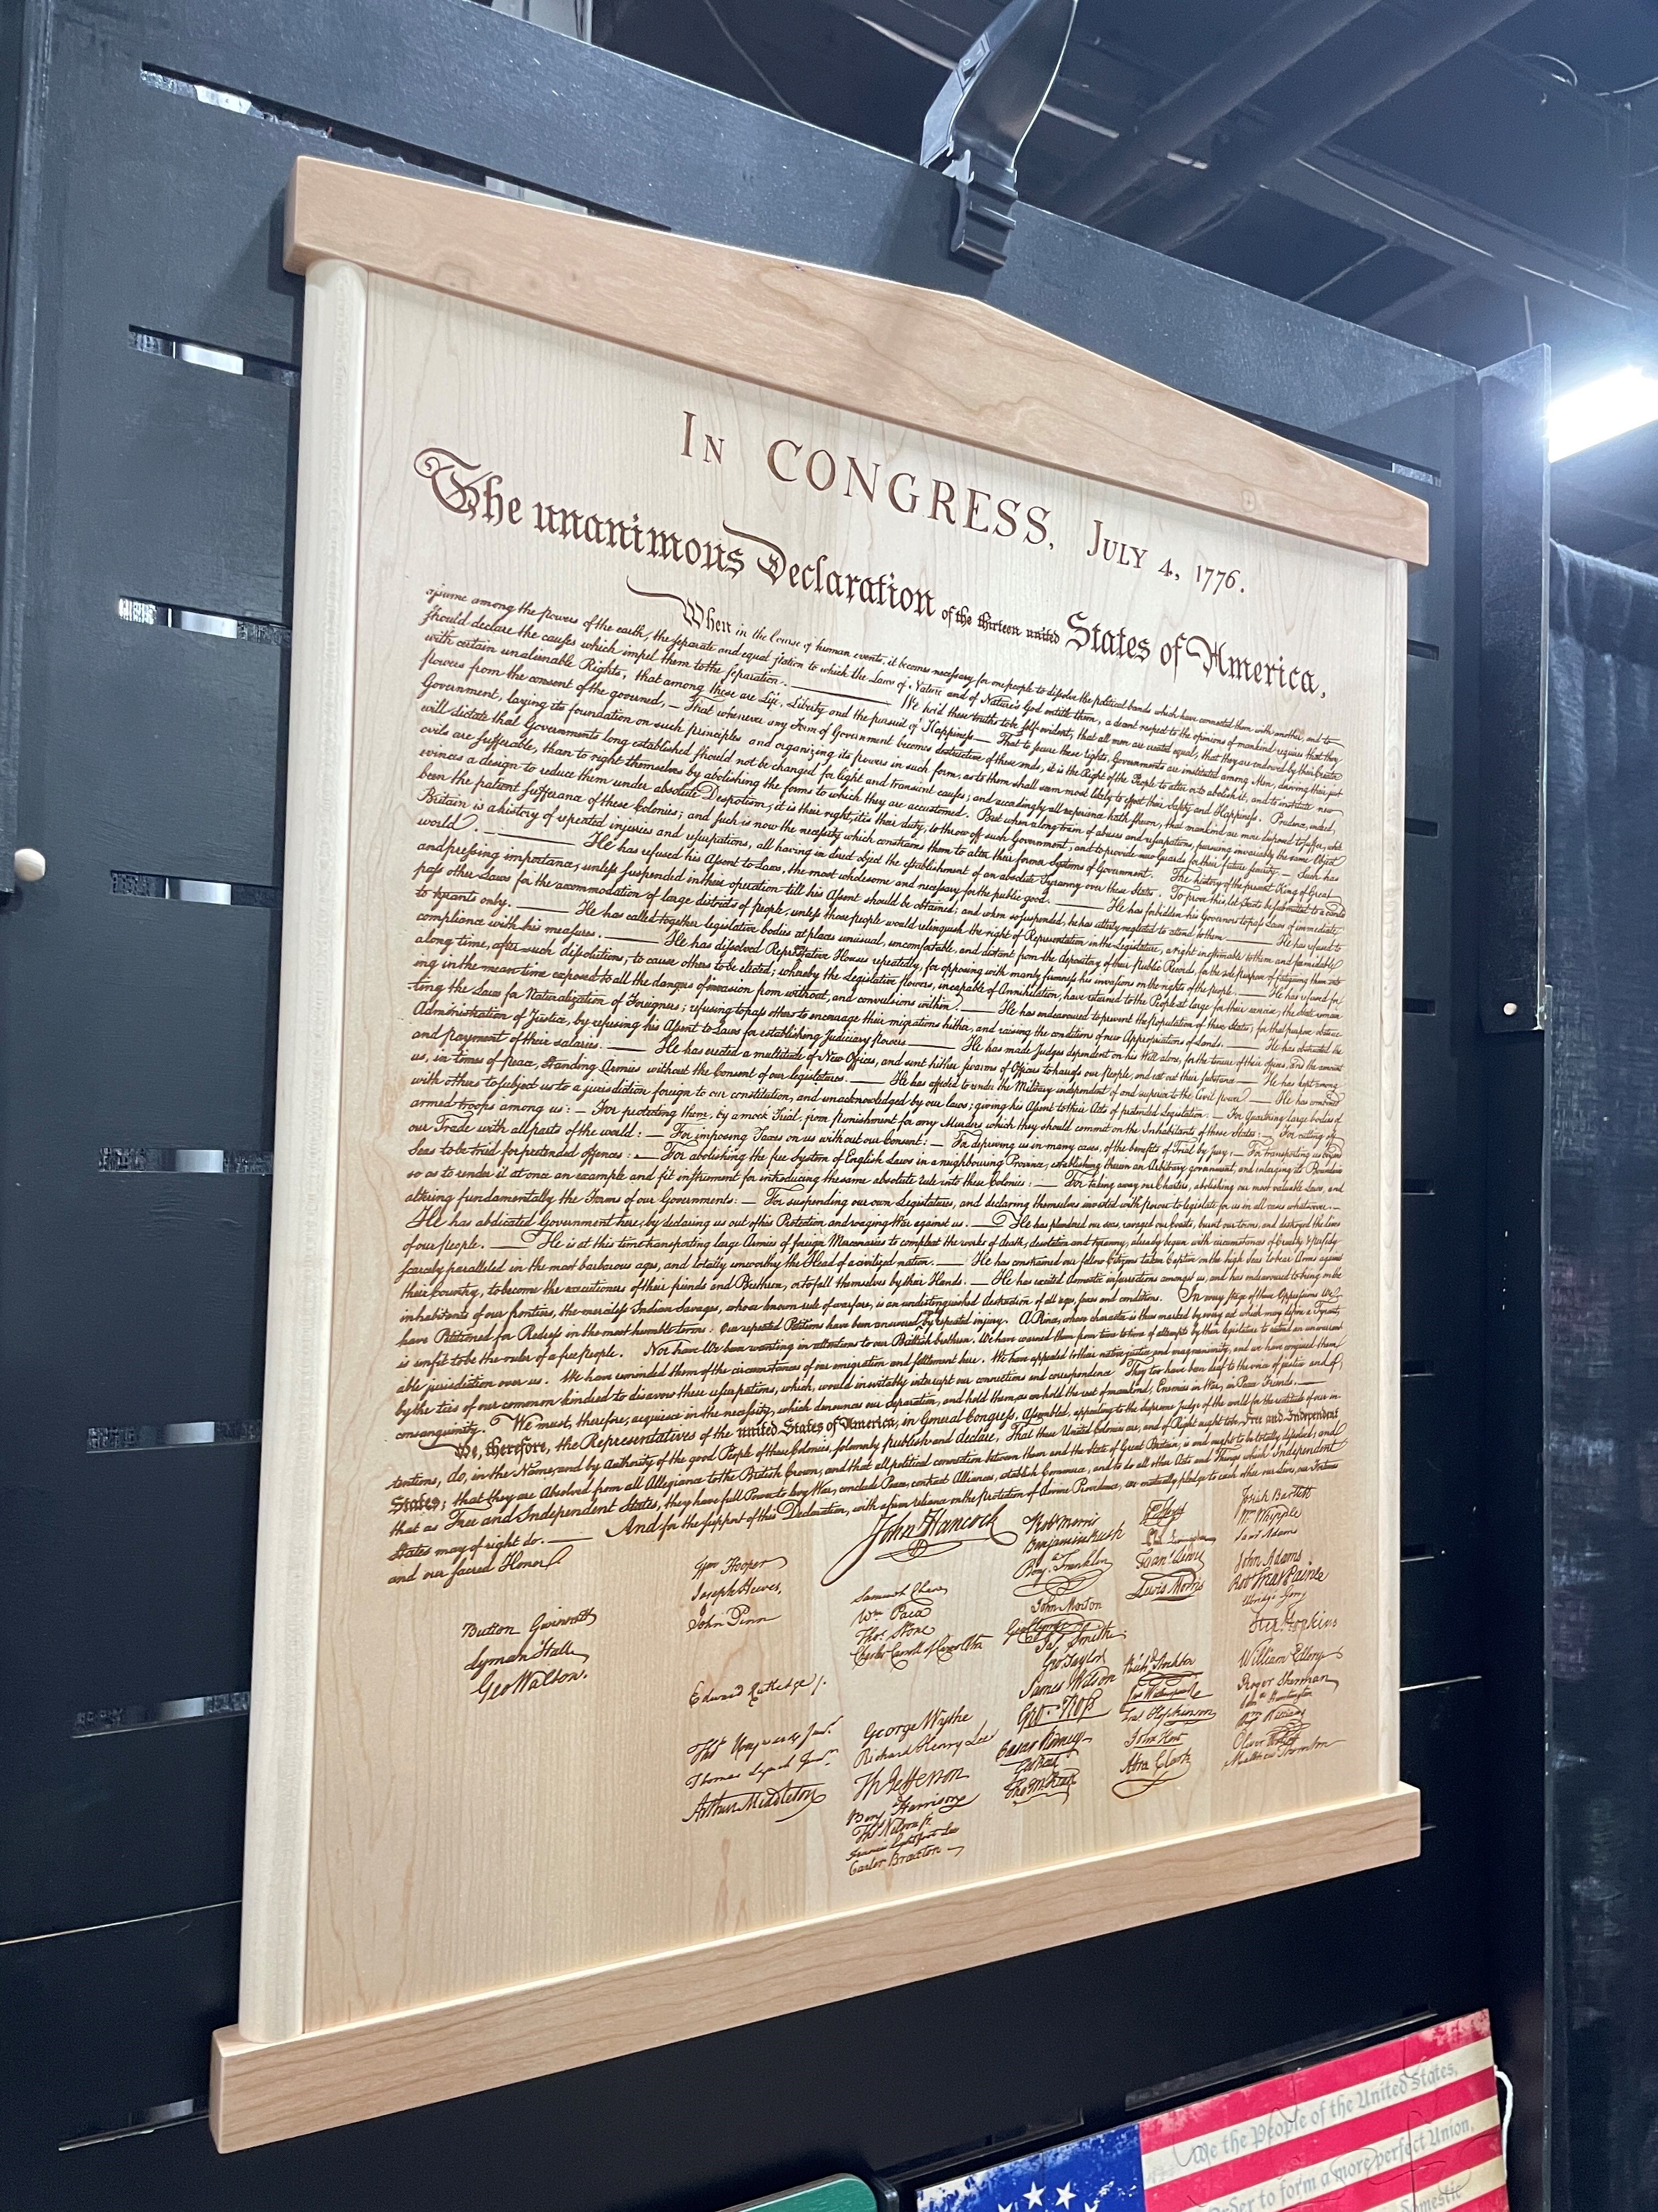 IN CONGRESS, JULY 4, 1776.
The unanimous Declaration of the thirteen united States of America,
When in the Course of human events, it becomes necessary for one people to dissolve the political bands which have connected them with another, and to
assume among the powers of the earth, the separate and equal station to which the Laws of Nature and of Nature's God entitle them, a decent respect to the opinions of mankind requires that they
should declare the causes which impel them to the separation. — We hold these truths to be self-evident, that all men are created equal, that they are endowed by their Creator
with certain unalienable Rights, that among these are Life, Liberty and the pursuit of Happiness.— That to secure these rights, Governments are instituted among Men, deriving their just
powers from the consent of the governed, — That whenever any Form of Government becomes destructive of these ends, it is the Right of the People to alter or to abolish it, and to institute new
Government, laying its foundation on such principles and organizing its powers in such form, as to them shall seem most likely to effect their Safety and Happiness. Prudence, indeed,
will dictate that Governments long established should not be changed for light and transient causes; and accordingly all experience hath shewn, that mankind are more disposed to suffer, while
evils are sufferable, than to right themselves by abolishing the forms to which they are accustomed. But when a long train of abuses and usurpations, pursuing invariably the same Object
evinces a design to reduce them under absolute Despotism, it is their right, it is their duty, to throw off such Government, and to provide new Guards for their future security. — Such has
been the patient sufferance of these Colonies; and such is now the necessity which constrains them to alter their former Systems of Government. The history of the present King of Great
Britain is a history of repeated injuries and usurpations, all having in direct object the establishment of an absolute Tyranny over these States. To prove this, let Facts be submitted to a candid
world. — He has refused his Assent to Laws, the most wholesome and necessary for the public good. — He has forbidden his Governors to pass Laws of immediate
and pressing importance, unless suspended in their operation till his Assent should be obtained; and when so suspended, he has utterly neglected to attend to them. — He has refused to
pass other Laws for the accommodation of large districts of people, unless those people would relinquish the right of Representation in the Legislature, a right inestimable to them and formidable
to tyrants only. — He has called together legislative bodies at places unusual, uncomfortable, and distant from the depository of their public Records, for the sole purpose of fatiguing them into
compliance with his measures. — He has dissolved Representative Houses repeatedly, for opposing with manly firmness his invasions on the rights of the people. — He has refused for
a long time, after such dissolutions, to cause others to be elected; whereby the Legislative powers, incapable of Annihilation, have returned to the People at large for their exercise; the State remain-
ing in the mean time exposed to all the dangers of invasion from without, and convulsions within. — He has endeavoured to prevent the population of these States; for that purpose obstruc-
ting the Laws for Naturalization of Foreigners; refusing to pass others to encourage their migrations hither, and raising the conditions of new Appropriations of Lands. — He has obstructed the
Administration of Justice, by refusing his Assent to Laws for establishing Judiciary powers. — He has made Judges dependent on his Will alone, for the tenure of their offices, and the amount
and payment of their salaries. — He has erected a multitude of New Offices, and sent hither swarms of Officers to harrass our people, and eat out their substance. — He has kept among
us, in times of peace, Standing Armies without the Consent of our legislatures. — He has affected to render the Military independent of and superior to the Civil power. — He has combined
with others to subject us to a jurisdiction foreign to our constitution, and unacknowledged by our laws; giving his Assent to their Acts of pretended Legislation: — For Quartering large bodies of
armed troops among us: — For protecting them, by a mock Trial, from punishment for any Murders which they should commit on the Inhabitants of these States: — For cutting off
our Trade with all parts of the world: — For imposing Taxes on us without our Consent: — For depriving us in many cases, of the benefits of Trial by Jury: — For transporting us beyond
Seas to be tried for pretended offences: — For abolishing the free System of English Laws in a neighbouring Province, establishing therein an Arbitrary government, and enlarging its Boundaries
so as to render it at once an example and fit instrument for introducing the same absolute rule into these Colonies: — For taking away our Charters, abolishing our most valuable Laws, and
altering fundamentally the Forms of our Governments: — For suspending our own Legislatures, and declaring themselves invested with power to legislate for us in all cases whatsoever. —
He has abdicated Government here, by declaring us out of his Protection and waging War against us. — He has plundered our seas, ravaged our Coasts, burnt our towns, and destroyed the lives
of our people. — He is at this time transporting large Armies of foreign Mercenaries to compleat the works of death, desolation and tyranny, already begun with circumstances of Cruelty & perfidy
scarcely paralleled in the most barbarous ages, and totally unworthy the Head of a civilized nation. — He has constrained our fellow Citizens taken Captive on the high Seas to bear Arms against
their Country, to become the executioners of their friends and Brethren, or to fall themselves by their Hands. — He has excited domestic insurrections amongst us, and has endeavoured to bring on the
inhabitants of our frontiers, the merciless Indian Savages, whose known rule of warfare, is an undistinguished destruction of all ages, sexes and conditions. In every stage of these Oppressions We
have Petitioned for Redress in the most humble terms: Our repeated Petitions have been answered by repeated injury. A Prince, whose character is thus marked by every act which may define a Tyrant,
is unfit to be the ruler of a free people. Nor have We been wanting in attentions to our Brittish brethren. We have warned them from time to time of attempts by their legislature to extend an unwarrant-
able jurisdiction over us. We have reminded them of the circumstances of our emigration and settlement here. We have appealed to their native justice and magnanimity, and we have conjured them
by the ties of our common kindred to disavow these usurpations, which, would inevitably interrupt our connections and correspondence. They too have been deaf to the voice of justice and of
consanguinity. We must, therefore, acquiesce in the necessity, which denounces our Separation, and hold them, as we hold the rest of mankind, Enemies in War, in Peace Friends. —
We, therefore, the Representatives of the united States of America, in General Congress, Assembled, appealing to the Supreme Judge of the world for the rectitude of our in-
tentions, do, in the Name, and by Authority of the good People of these Colonies, solemnly publish and declare, That these United Colonies are, and of Right ought to be Free and Independent
States; that they are Absolved from all Allegiance to the British Crown, and that all political connection between them and the State of Great Britain, is and ought to be totally dissolved; and
that as Free and Independent States, they have full Power to levy War, conclude Peace, contract Alliances, establish Commerce, and to do all other Acts and Things which Independent
States may of right do. — And for the support of this Declaration, with a firm reliance on the protection of divine Providence, we mutually pledge to each other our Lives, our Fortunes
and our sacred Honor.
Button Gwinnett
Lyman Hall
Geo Walton.
Wm Hooper
Joseph Hewes,
John Penn
Edward Rutledge /.
Thos Heyward Junr.
Thomas Lynch Junr.
Arthur Middleton
John Hancock
Samuel Chase
Wm Paca
Thos. Stone
Charles Carroll of Carrollton
George Wythe
Richard Henry Lee
Th Jefferson
Benj Harrison
Thos Nelson jr.
Francis Lightfoot Lee
Carter Braxton
Robt Morris
Benjamin Rush
Benj. Franklin
John Morton
Geo Clymer
Jas. Smith.
Geo. Taylor
James Wilson
Geo. Ross
Caesar Rodney
Geo Read
Tho M:Kean
Wm Floyd
Phil. Livingston
Frans. Lewis
Lewis Morris
Richd. Stockton
Jno Witherspoon
Fras. Hopkinson
John Hart
Abra Clark
Josiah Bartlett
Wm: Whipple
Saml Adams
John Adams
Robt Treat Paine
Elbridge Gerry
Step. Hopkins
William Ellery
Roger Sherman
Saml Huntington
Wm Williams
Oliver Wolcott
Matthew Thornton
We the People of the United States,
Order to form a more perfect Union,
Domestic